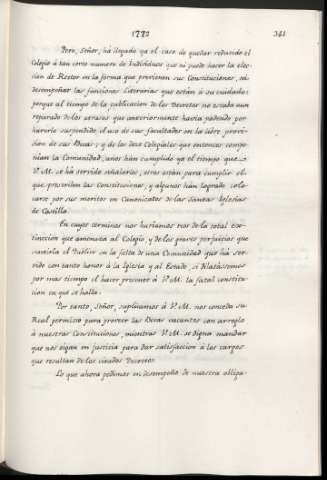 1772
341
Pero, Señor, há llegado ya el caso de quedar reducido el
Colegio á tan corto numero de Individuos que ni puede hacer la elec-
cion de Rector en la forma que previenen sus Constituciones, ni
desempeñar las funciones literarias que están á su cuidado:
porque al tiempo de la publicacion de los Decretos no estaba aun
reparado de los atrasos que anteriormente havia padecido por
haverle suspendido el uso de sus facultades en la libre provi-
sion de sus Becas; y de los diez Colegiales que entonces compo-
nian la Comunidad, unos hán cumplido ya el tiempo que
V. M. se há servido señalarles; otros están para cumplir el
que prescriben las Constituciones, y algunos hán logrado colo-
carse por sus meritos en Canonicatos de las Santas Iglesias
de Castilla.
En cuyos terminos nos hallamos cerca de la total ex-
tincion que amenaza al Colegio, y de los graves perjuicios que
sentiria el Publico en la falta de una Comunidad que há ser-
vido con tanto honor á la Iglesia y al Estado, si dilatásemos
por mas tiempo el hacer presente á V. M. la fatal constitu-
cion en que se halla.
Por tanto, Señor, suplicamos á V. M. nos conceda su
Real permiso para proveer las Becas vacantes con arreglo
á nuestras Constituciones, mientras V. M. se digna mandar
que nos oigan en justicia para dar satisfaccion á los cargos
que resultan de los citados Decretos.
Lo que ahora pedimos en desempeño de nuestra obliga-